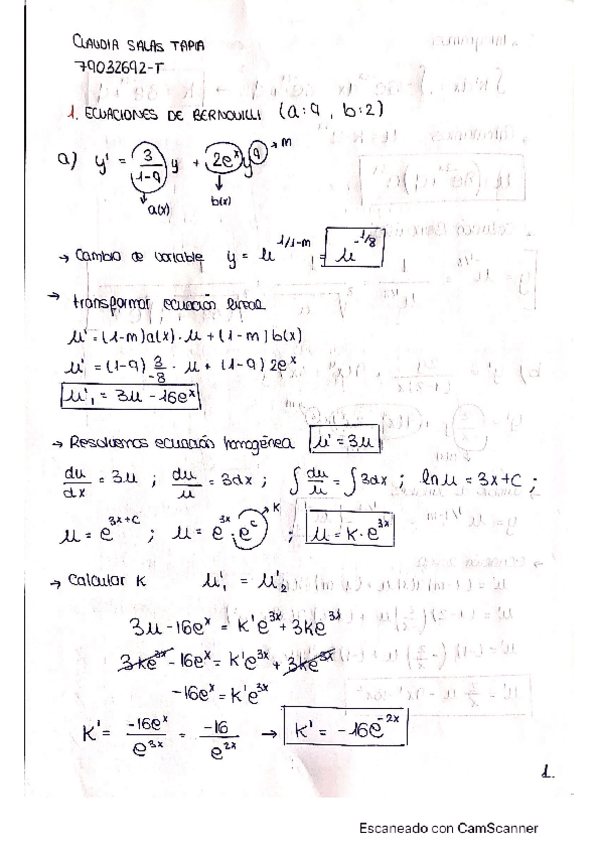 CLAUDIA SALAS TAPIA
79032692-T
1. ECUACIONES DE BERNOUILLI (a:9, b:2)
a) y' = 3/(1-9) y + 2e^x y^9 → m
a(x) b(x)
→ Cambio de variable y = u^(1/1-m) = u^(-1/8)
→ transformar ecuación lineal
u' = (1-m)a(x)·u + (1-m)b(x)
u' = (1-9) 3/-8 · u + (1-9) 2e^x
u'₁ = 3u - 16e^x
→ Resolvemos ecuación homogénea u' = 3u
du/dx = 3u ; du/u = 3dx ; ∫ du/u = ∫ 3dx ; ln u = 3x + C ;
u = e^(3x+C) ; u = e^(3x) · e^C → K ; u = K · e^(3x)
→ Calcular K u'₁ = u'₂
3u - 16e^x = K'e^(3x) + 3Ke^(3x)
3Ke^(3x) - 16e^x = K'e^(3x) + 3Ke^(3x)
-16e^x = K'e^(3x)
K' = -16e^x/e^(3x) = -16/e^(2x) → K' = -16e^(-2x)
1.
Escaneado con CamScanner